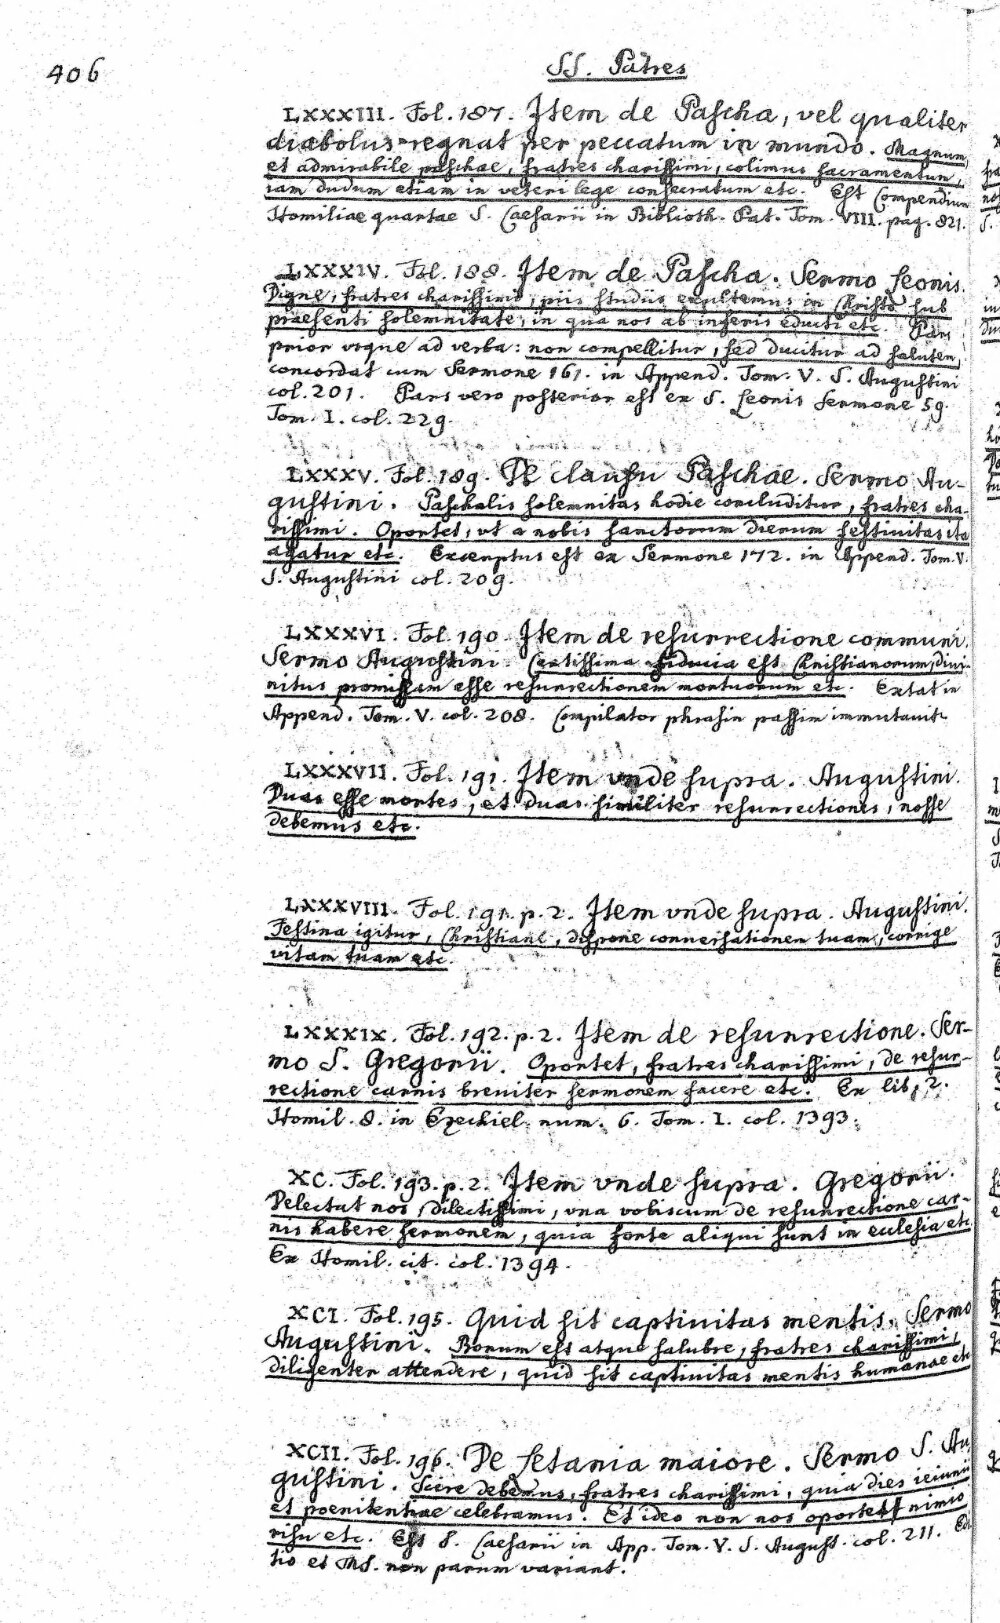 406
SS. Patres
LXXXIII. Fol. 187. Item de Pascha, vel qualiter
diabolus regnat per peccatum in mundo. Magnum
et admirabile paschae, fratres charissimi, colimus sacramentum,
iam dudum etiam in veteri lege consecratum etc. Est Compendium
Homiliae quartae S. Caesarii in Biblioth. Pat. Tom. VIII. pag. 821.
LXXXIV. Fol. 188. Item de Pascha. Sermo Leonis.
Digne, fratres charissimi, piis studiis exultemus in Christo sub
praesenti solemnitate, in qua nos ab inferis educti etc. Pars
prior vsque ad verba: non compellitur, sed ducitur ad salutem,
concordat cum Sermone 161. in Append. Tom. V. S. Augustini
col. 201. Pars vero posterior est ex S. Leonis Sermone 59.
Tom. I. col. 229.
LXXXV. Fol. 189. De clausu Paschae. Sermo Au-
gustini. Paschalis solemnitas hodie concluditur, fratres cha-
rissimi. Oportet, vt a nobis sanctorum dierum festiuitas ita
agatur etc. Excerptus est ex Sermone 172. in Append. Tom. V.
S. Augustini col. 209.
LXXXVI. Fol. 190. Item de resurrectione communi.
Sermo Augustini. Certissima fiducia est Christianorum, diui-
nitus promissam esse resurrectionem mortuorum etc. Extat in
Append. Tom. V. col. 208. Compilator phrasin passim immutauit.
LXXXVII. Fol. 191. Item vnde supra. Augustini.
Duas esse mortes, et duas similiter resurrectiones, nosse
debemus etc.
LXXXVIII. Fol. 191. p. 2. Item vnde supra. Augustini.
Festina igitur, Christiane, dispone conuersationem tuam, corrige
vitam tuam etc.
LXXXIX. Fol. 192. p. 2. Item de resurrectione. Ser-
mo S. Gregorii. Oportet, fratres charissimi, de resur-
rectione carnis breuiter sermonem facere etc. Ex lib. 2.
Homil. 8. in Ezechiel. num. 6. Tom. I. col. 1393.
XC. Fol. 193. p. 2. Item vnde supra. Gregorii.
Delectat nos, dilectissimi, vna vobiscum de resurrectione car-
nis habere sermonem, quia forte aliqui sunt in ecclesia etc
Ex Homil. cit. col. 1394.
XCI. Fol. 195. Quid sit captiuitas mentis. Sermo
Augustini. Bonum est atque salubre, fratres charissimi,
diligenter attendere, quid sit captiuitas mentis humanae etc
XCII. Fol. 196. De Letania maiore. Sermo S. Au
gustini. Scire debemus, fratres charissimi, quia dies ieiunii
et poenitentiae celebramus. Et ideo non nos oportet nimio
risu etc. Est S. Caesarii in App. Tom. V. S. August. col. 211. Edi
tio et MS. non parum variant.